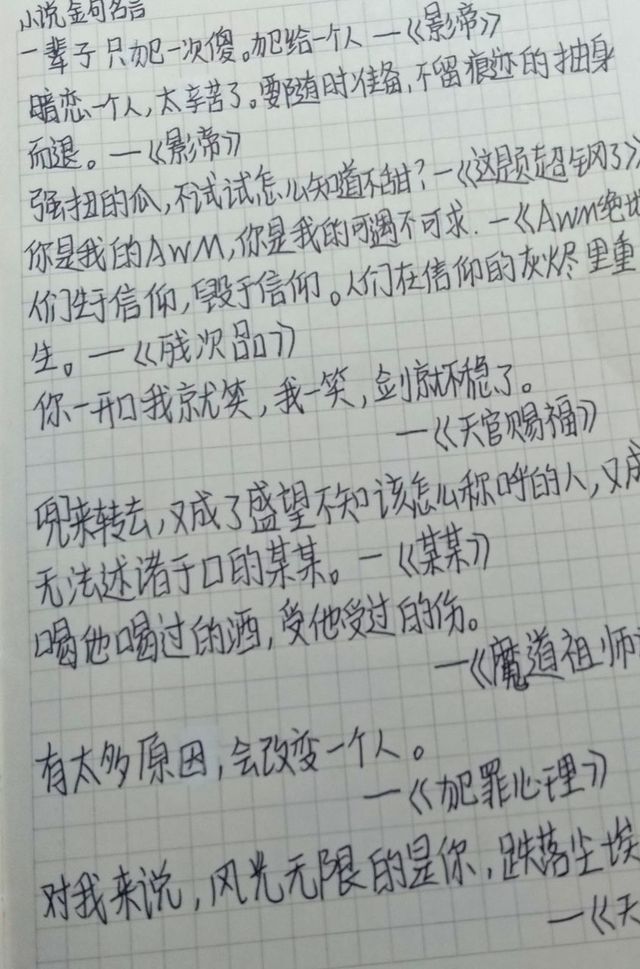 小说金句名言
一辈子只犯一次傻。犯给一个人 —《影帝》
暗恋一个人，太辛苦了。要随时准备，不留痕迹的抽身
而退。—《影帝》
强扭的瓜，不试试怎么知道不甜？—《这题超纲了》
你是我的AWM，你是我的可遇不可求. —《AWM绝地
人们生于信仰，毁于信仰。人们在信仰的灰烬里重
生。—《残次品》
你一开口我就笑，我一笑，剑就不稳了。
—《天官赐福》
兜来转去，又成了盛望不知该怎么称呼的人，又成
无法述诸于口的某某。—《某某》
喝他喝过的酒，受他受过的伤。
—《魔道祖师
有太多原因，会改变一个人。
—《犯罪心理》
对我来说，风光无限的是你，跌落尘埃
—《天